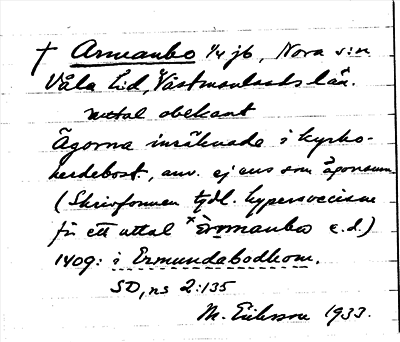 † Armanbo 1/4 jb, Nora s:n
Våla hd, Västmanlands län.
uttal obekant
Ägorna inräknade i kyrko-
herdebost., anv. ej ens som ägonamn
(Skrivformen tydl. hypersveccisme
för ett uttal *Ėrmanbo e.d.)
1409: i Ermundabodhom.
SD, ns 2:135
M. Eriksson 1933.